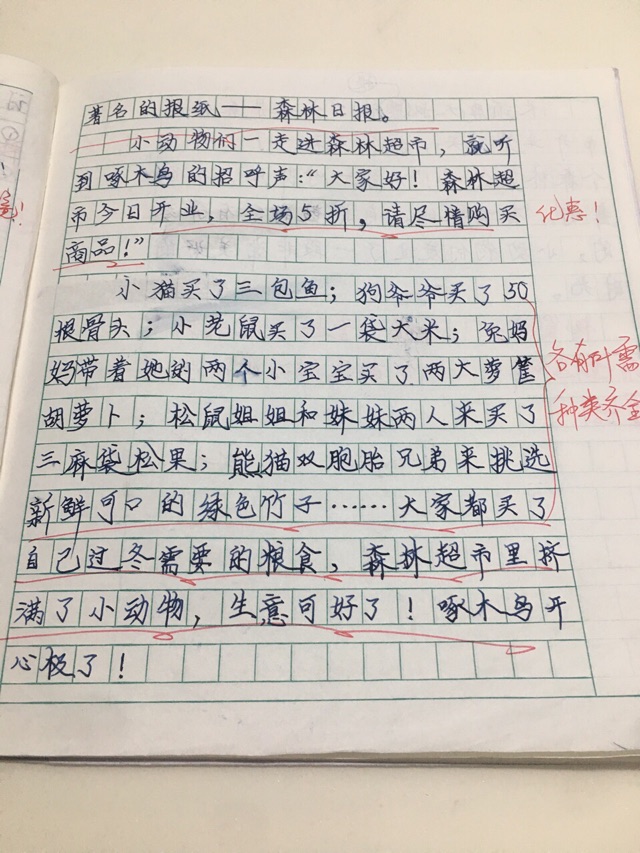 著名的报纸——森林日报。
小动物们一走进森林超市，就听
到啄木鸟的招呼声：“大家好！森林超
市今日开业，全场5折，请尽情购买
商品！”
优惠！
小猫买了三包鱼；狗爷爷买了50
根骨头；小老鼠买了一袋大米；兔妈
妈带着她的两个小宝宝买了两大萝筐
胡萝卜；松鼠姐姐和妹妹两人来买了
三麻袋松果；熊猫双胞胎兄弟来挑选
新鲜可口的绿色竹子……大家都买了
各有所需
种类齐全
自己过冬需要的粮食，森林超市里挤
满了小动物，生意可好了！啄木鸟开
心极了！